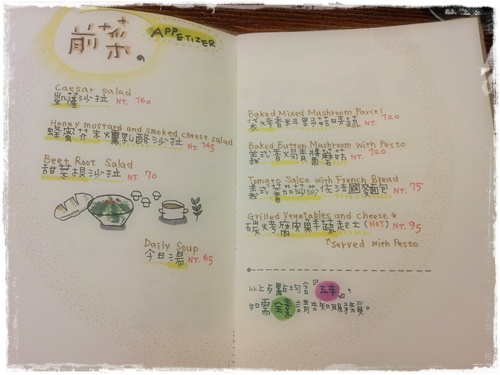 前菜,
APPETIZER
Caesar salad
凱薩沙拉 NT. 150
Honey mustard and smoked cheese salad
蜂蜜芥末燻乳酪沙拉 NT. 145
Beet Root Salad
甜菜根沙拉 NT. 70
Daily Soup
今日湯 NT. 65
Baked Mixed Mashroom Parcel
NT. 120
Baked Button Mushroom with Pesto
義式香焗青醬蘑菇 NT. 120
Tomato Salsa with French Bread
義式蕃茄莎莎佐法國麵包 NT. 75
Grilled Vegetables and cheese
碳烤 起士(HOT) NT. 95
Served with Pesto
以上餐點均含「五辛」,
如需全素請告知服務員。